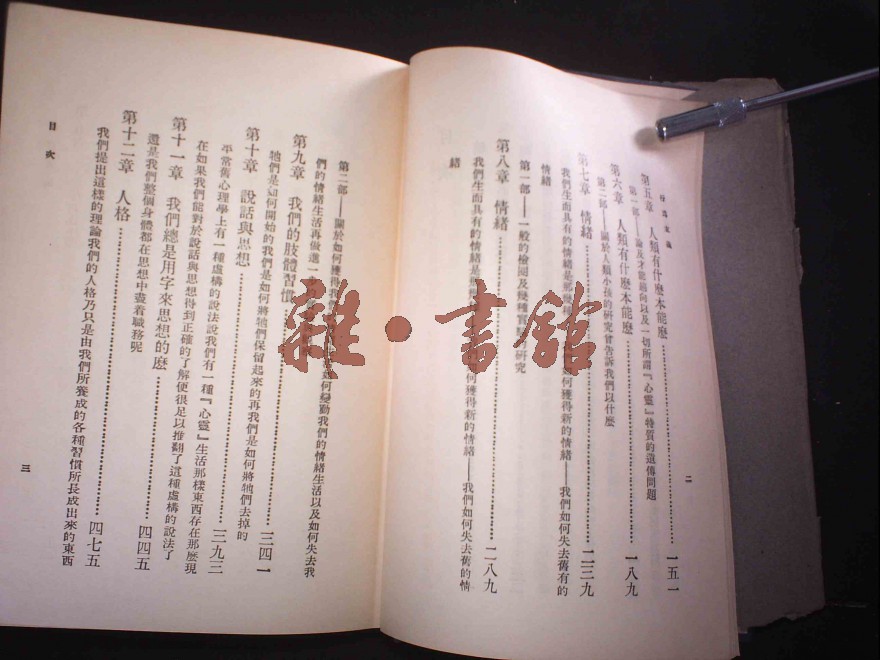 行爲主義
二
第五章 人類有什麽本能麽……一五一
第一部——論及才能趨向以及一切所謂『心靈』特質的遺傳問題
第六章 人類有什麽本能麽……一八九
第二部——關於人類小孩的研究曾告訴我們以什麽
第七章 情緒……二三九
我們生而具有的情緒是那幾種——我們如何獲得新的情緒——我們如何失去舊有的
情緒
第一部——一般的檢閱及幾種實驗研究
第八章 情緒……二八九
我們生而具有的情緒是那 如何獲得新的情緒——我們如何失去舊的情
緒
第二部——關於如何獲得我 如何變動我們的情緒生活以及如何失去我
們的情緒生活再做進一
第九章 我們的肢體習慣……三四一
牠們是如何開始的我們是如何將牠們保留起來的再我們是如何將牠們去掉的
第十章 說話與思想……三九三
平常舊心理學上有一種虛構的說法說我們有一種『心靈』生活那樣東西存在那麽現
在如果我們能對於說話與思想得到正確的了解便很足以推翻了這種虛構的說法了
第十一章 我們總是用字來思想的麽……四四五
還是我們整個身體都在思想中盡着職務呢
第十二章 人格……四七五
我們提出這樣的理論我們的人格乃只是由我們所養成的各種習慣所長成出來的東西
目次
三
雜·書館